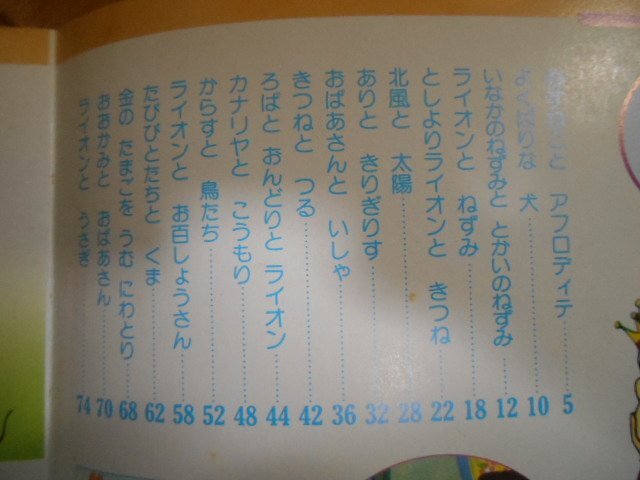 と アフロディテ 5
よくばりな 犬 10
いなかのねずみと とかいのねずみ 12
ライオンと ねずみ 18
としよりライオンと きつね 22
北風と 太陽 28
ありと きりぎりす 32
おばあさんと いしゃ 36
きつねと つる 42
ろばと おんどりと ライオン 44
カナリヤと こうもり 48
からすと 鳥たち 52
ライオンと お百しょうさん 58
たびびとたちと くま 62
金の たまごを うむ にわとり 68
おおかみと おばあさん 70
ライオンと うさぎ 74